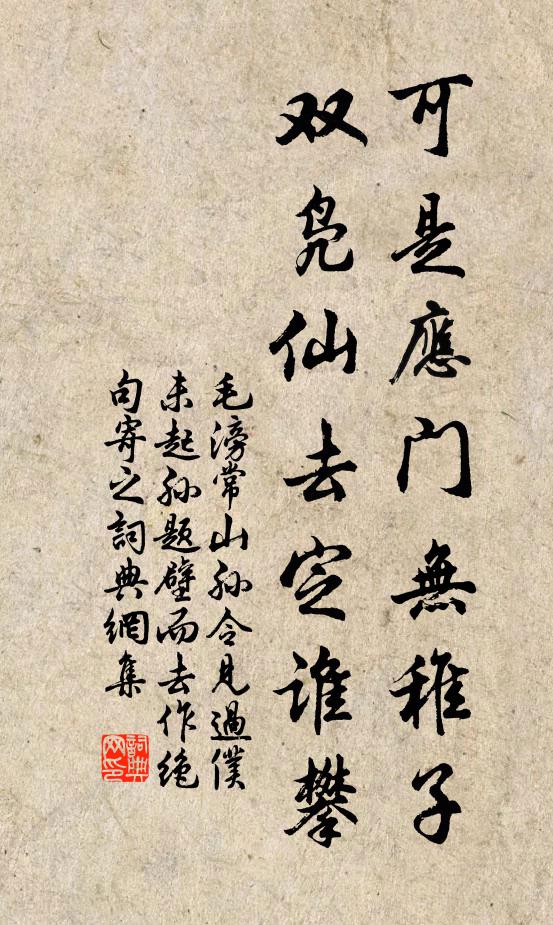 可是應門無稚子
双凫仙去定谁攀
毛滂常山孙令見過僕
未起孙题壁而去作绝
句寄之詞典網集
詞典
网印